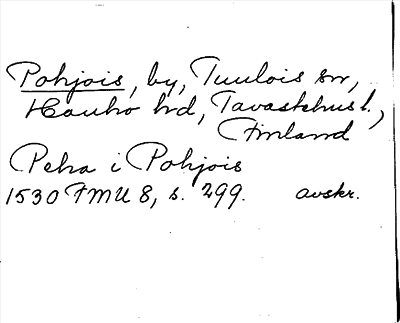 Pohjois, by, Tuulois sn,
Hauho hd, Tavastehus l.,
Finland
Peka i Pohjois
1530 FMU 8, s. 299. avskr.